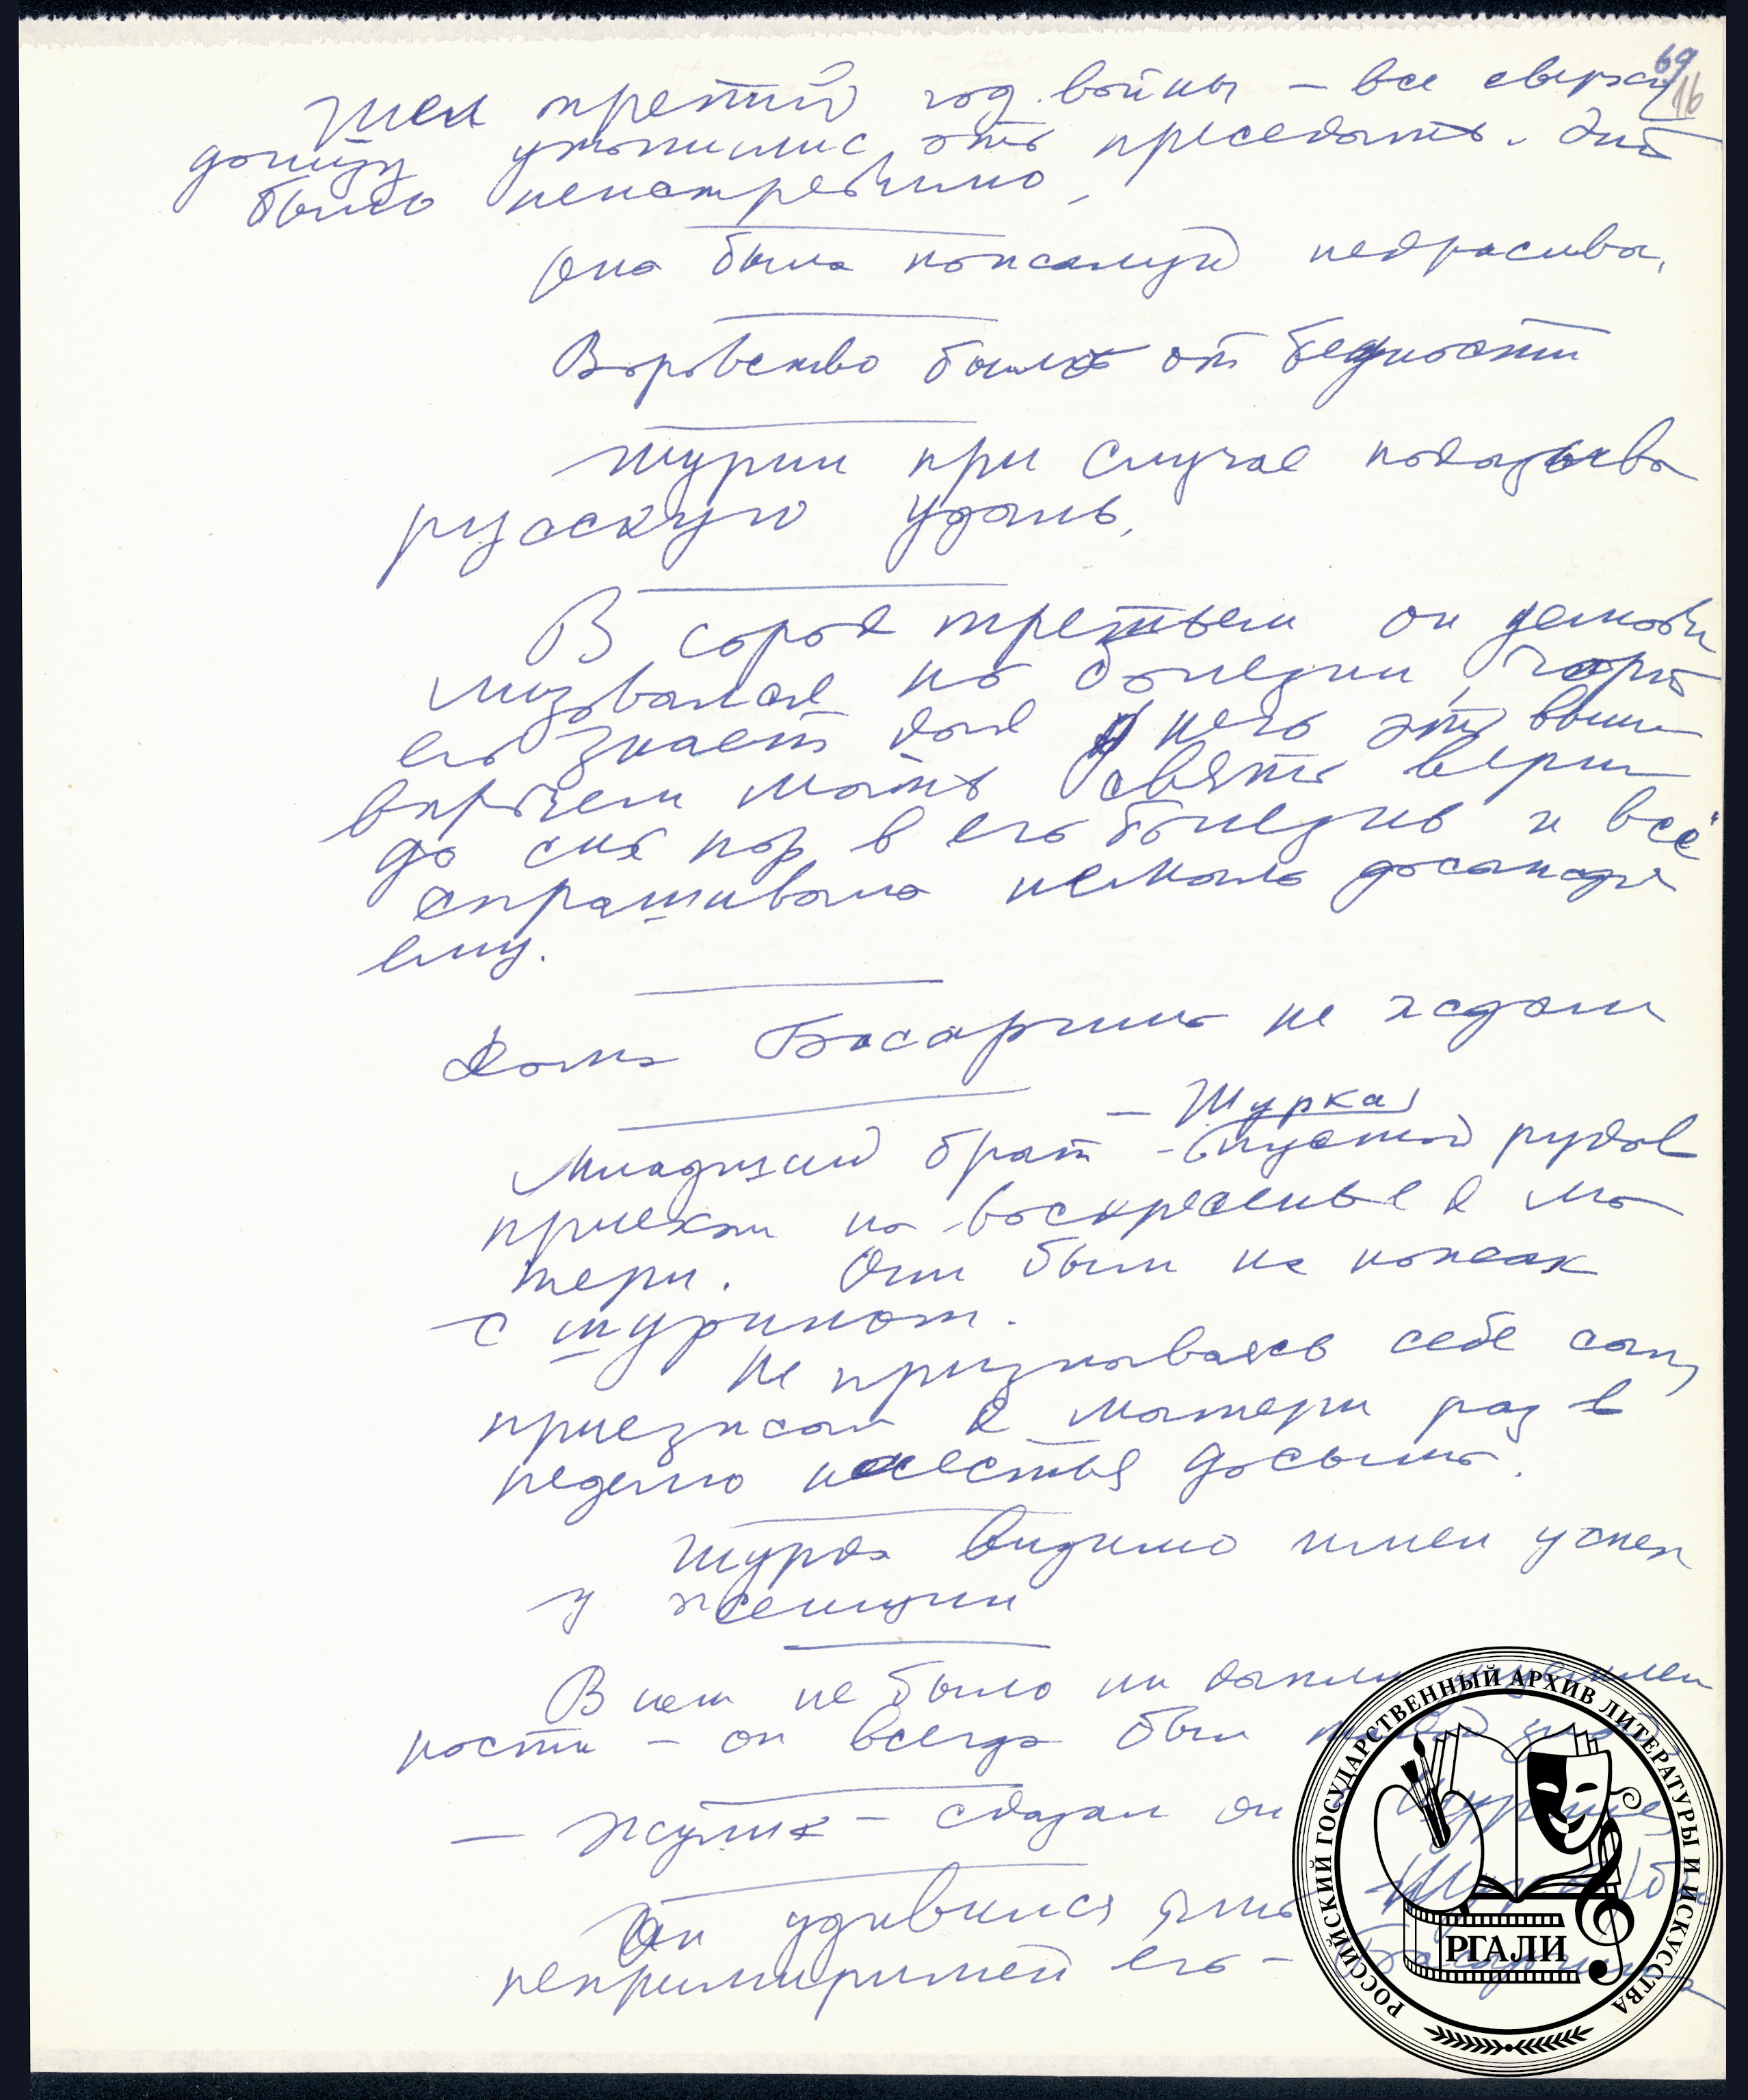 69
16
Шел третий год войны — все сверху
донизу утомились это преследовать. Это
было неистребимо,
Она была пожалуй некрасива.
Воровство было от бедности
Шурин при случае показыва
русскую удаль,
В сорок третьем он демоби
лизовался по болезни, чорт
его знает как у него это вышл
впрочем мать свято верил
до сих пор в его болезнь и всё
спрашивала немало досаждая
ему.
Дома Басаргина не ждали
— Шурка
Младший брат — пустой рукав
приехал на воскресенье к ма
тери. Они были на ножах
с шурином.
Не признаваясь себе сам,
приезжал к матери раз в
неделю поесть досыта.
Шурка видимо имел успех
у женщин
В нем не было ни капли
ности — он всегда был
— Жулик — сказал он
Он удивился
непримиримей его — Басаргина
РОССИЙСКИЙ ГОСУДАРСТВЕННЫЙ АРХИВ ЛИТЕРАТУРЫ И ИСКУССТВА
РГАЛИ